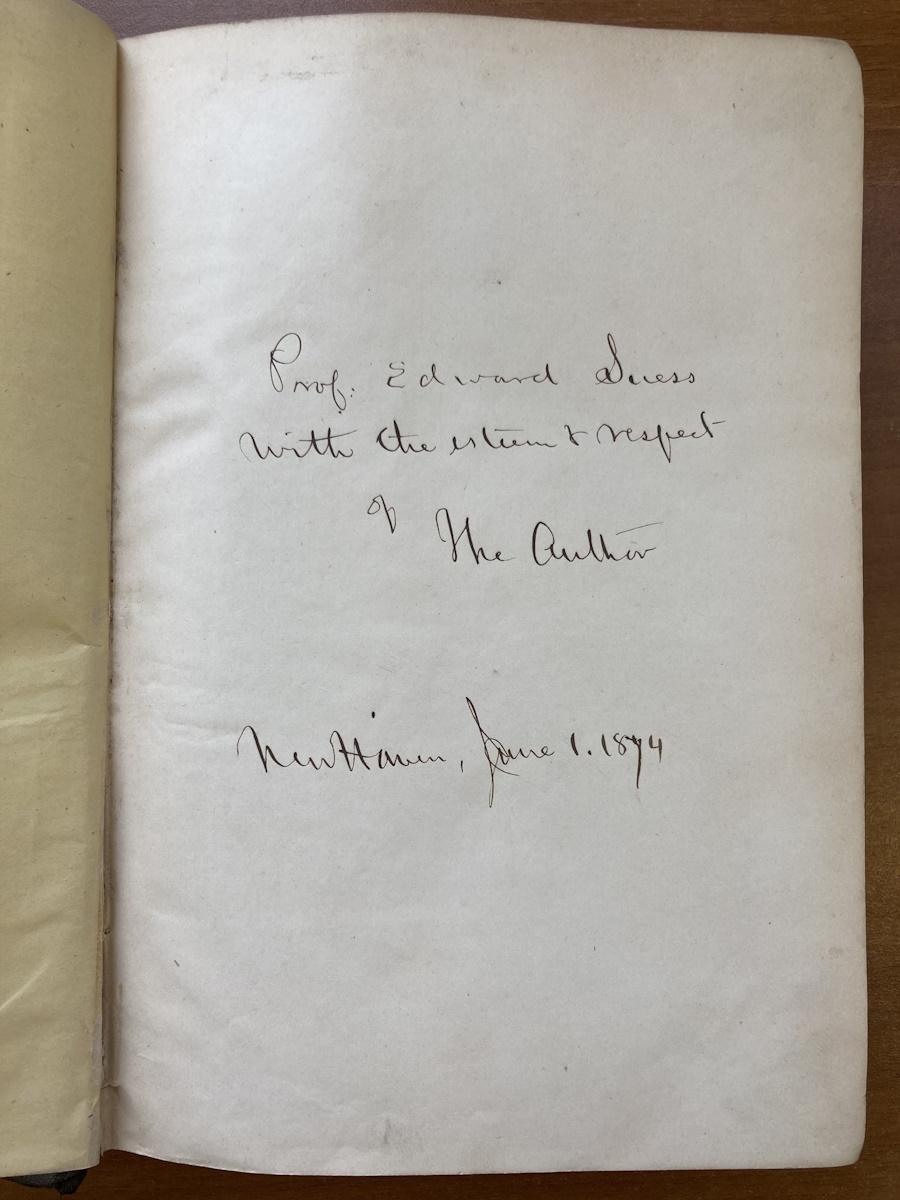 Prof. Edward Suess
with the esteem & respect
of
The Author
New Haven, June 1. 1874